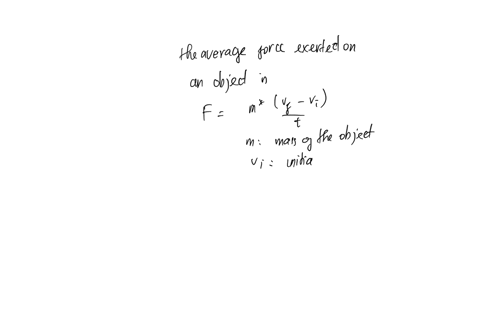 the average force exerted on
an object is
F = m* (vf - vi) / t
m: mass of the object
vi: initia